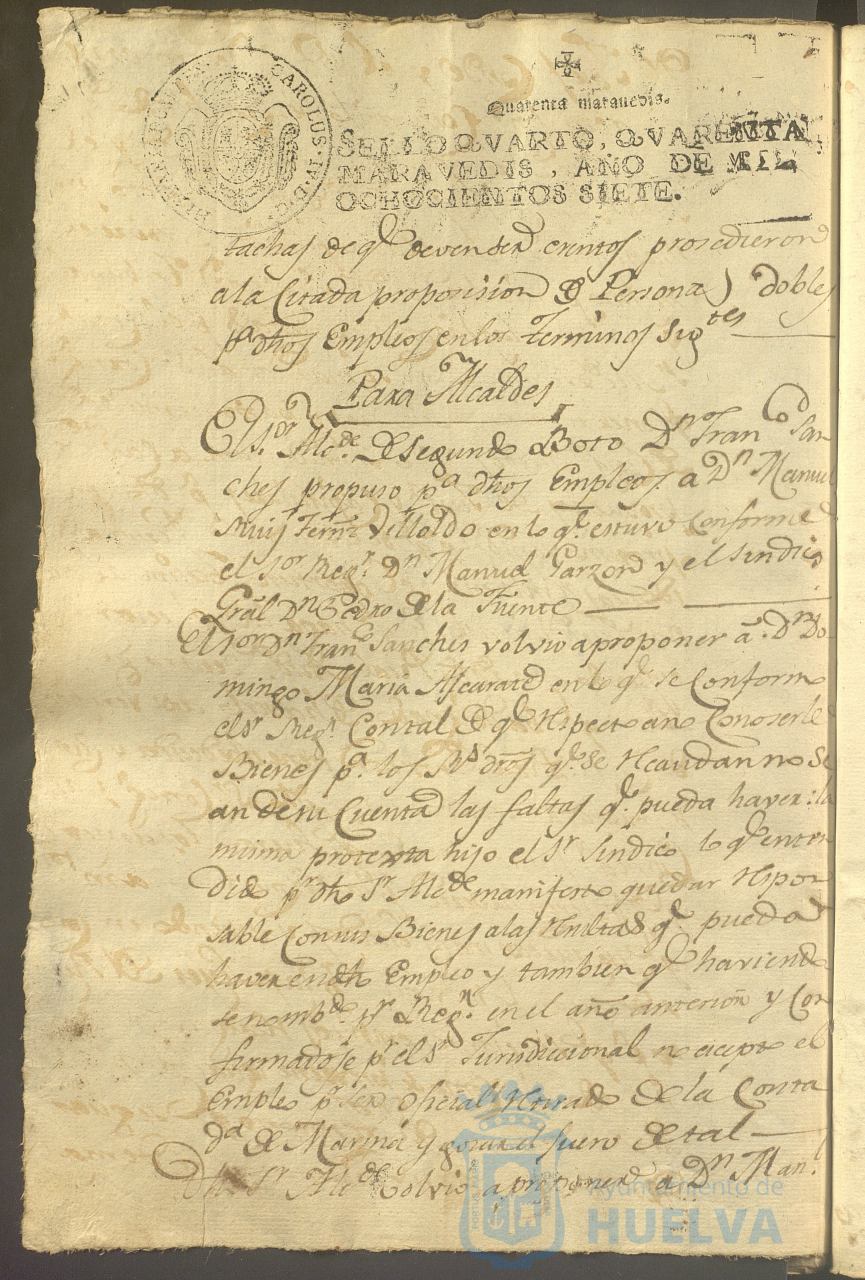 HISPANIARUM REX CAROLUS IV D G
Quarenta marauedis.
SELLO QVARTO, QVARENTA
MARAVEDIS, AÑO DE MIL
OCHOCIENTOS SIETE.
tachas de q.e deven ser esentos prosedieron
a la Citada proposision de Personas dobles
p.a dhos Empleos en los Terminos sig.tes
Para Alcaldes
El s.or Alc.de de segundo Boto D.n Fran.co San
ches propuso p.a dhos Empleos a D.n Manuel
Ruiz Fern.z Delloldo en lo q.e estuvo Conforme
el s.or Reg.r D.n Manuel Garzon y el sindico
Gral D.n Pedro de la Fuente
El s.or D.n Fran.co Sanches volvio a proponer a D.n Do
mingo Maria Ascarate en lo q.e se Conformo
el s.r Reg.r Con tal de q.e respecto a no Conoserle
Bienes p.a los R.s dros q.e se recaudan no se
an de su Cuenta las faltas q.e pueda haver: la
misma protexta hijo el s.r sindico lo q.e enten
dido p.r dho s.r Alc.de manifesto quedar respon
sable Con sus Bienes a las resultas q.e pueda
haver en dho Empleo y tambien q.e haviendo
se nomb.do p.r Reg.r en el año anterior y Con
firmadose p.r el s.r Jurisdiccional no acepto el
Empleo p.r ser oficial retirado de la Conta
d.a de Marina y gozar el fuero de tal
Dho s.r Alc.de volvio a proponer a D.n Man.l
Ayuntamiento de
HUELVA